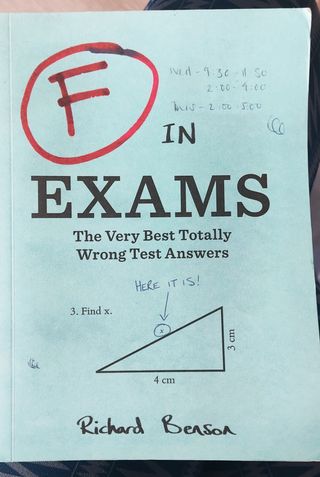 F
Wed - 9:30 - 11:30
2:00 - 4:00
Thurs - 2:00 - 5:00
IN
EXAMS
The Very Best Totally
Wrong Test Answers
HERE IT IS!
3. Find x.
x
3 cm
4 cm
Richard Benson